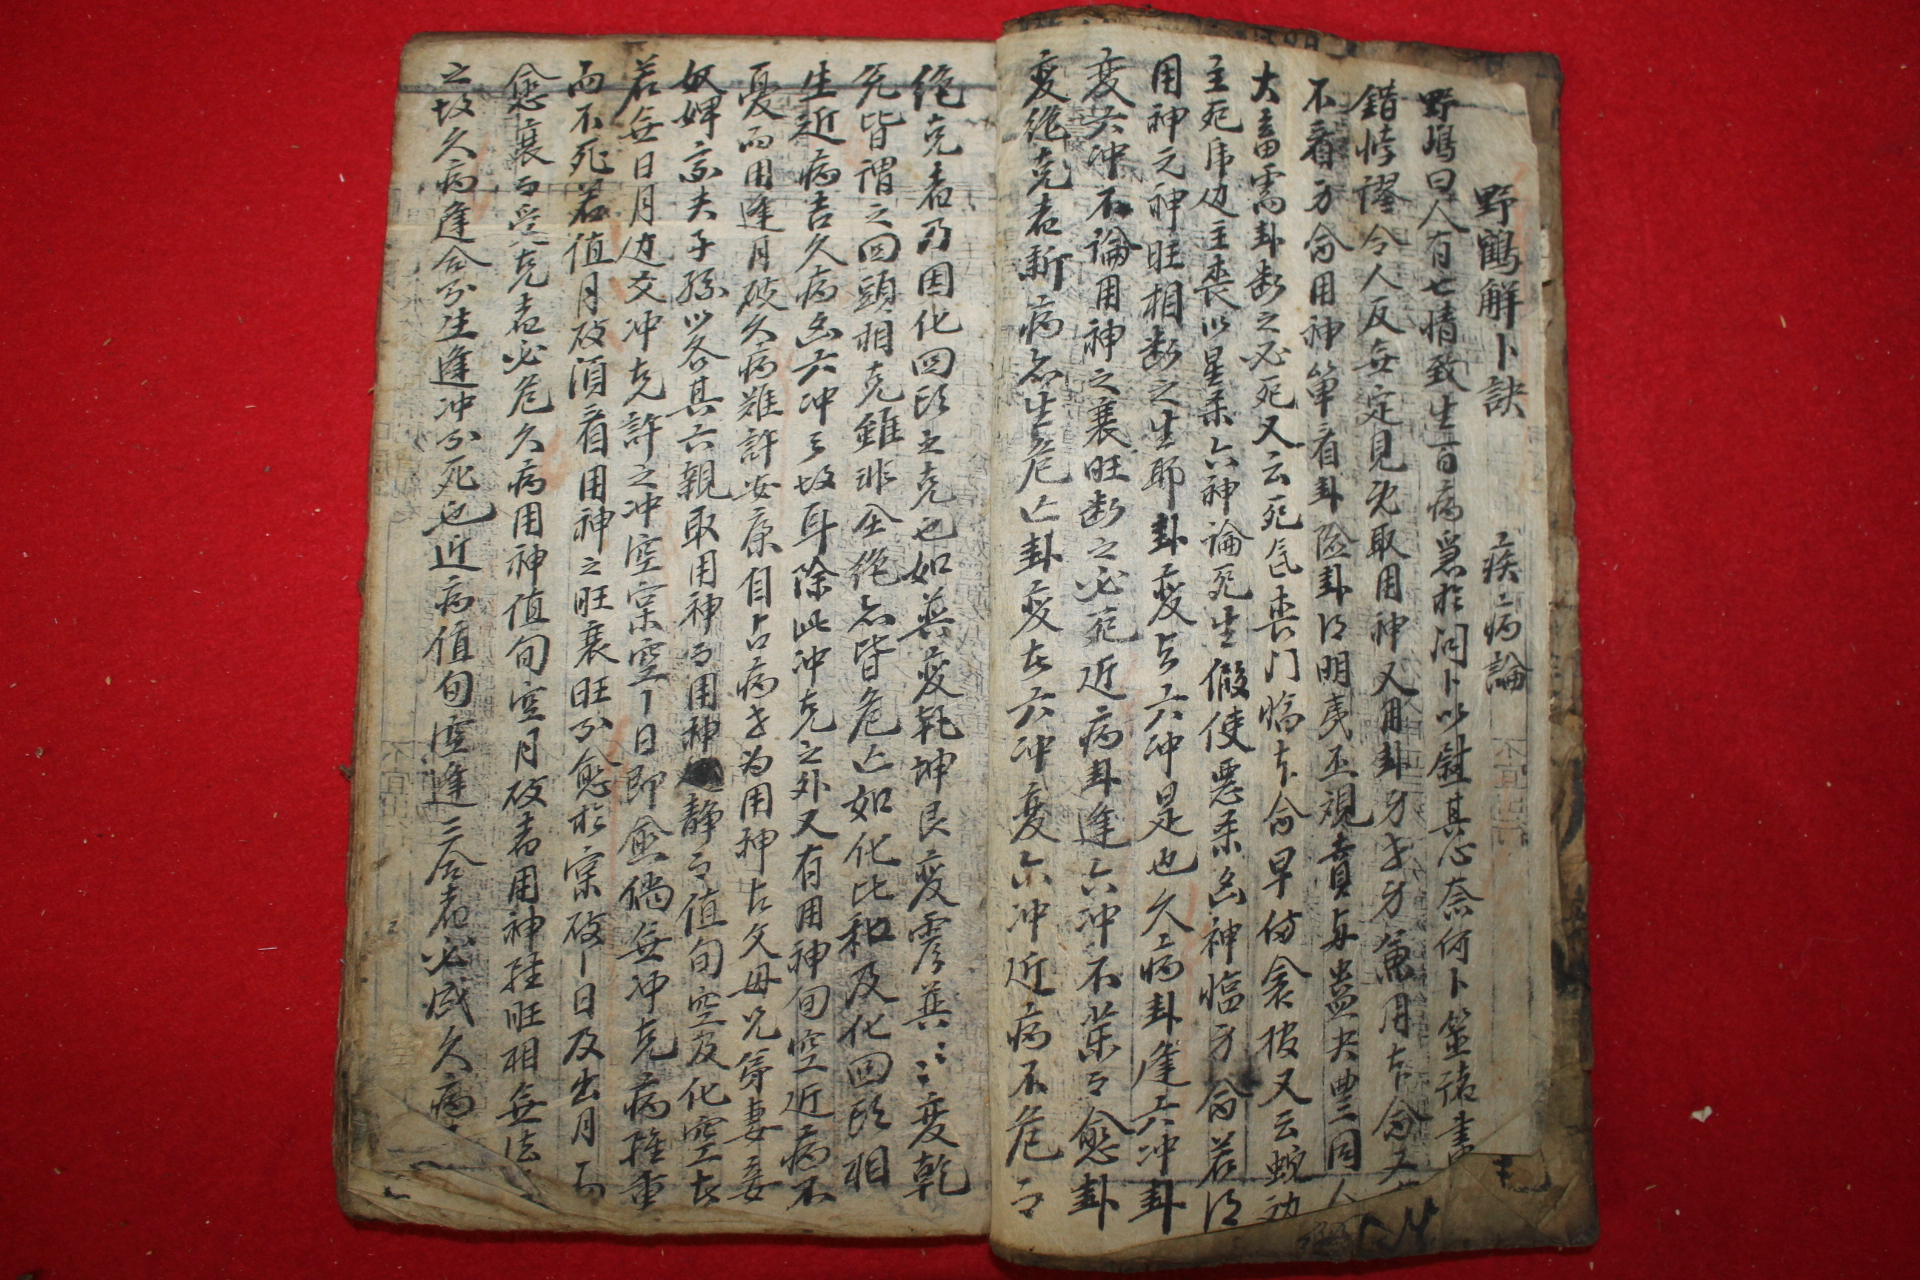 野鶴解卜訣 疾病論
野鶴曰人有七情致生百病急於問卜以慰其心奈何卜筮諸書
錯悖謬令人反無定見既取用神又用卦身世身兼用本命又
不看身命用神單看卦險卦得明夷蠱夬豐同人
大畜需卦斷之必死又云死氣喪門臨本命早備衾 又云蛇動
主死虎 主喪以星煞六神論死生假使惡煞凶神臨身命若得
用神元神旺相斷之生耶卦變者六冲是也久病卦逢六冲卦
變六冲不論用神之衰旺斷之必死近病卦逢六冲不藥而愈卦
變絶克者新病亦生危亡卦變在六冲變六冲近病不危
絶克者乃因化回頭之克也如巽變乾坤艮變震巽 變乾
兌皆謂之回頭相克雖非全絶亦皆危亡如化比和及化回頭相
生近病吉久病凶六冲之故耳除此冲克之外又有用神旬空近病不
憂而用逢月破久病難許安康自占病世为用神占父母兄弟妻妾
奴婢家夫子孫以各其六親取用神而用神 靜而值旬空及化空在
若無日月 交冲克許之冲空實空之日即愈倘無冲克病雖重
而不死若值月破須看用神之旺衰旺則愈於實破之日及出月
愈衰而受克者必危久病用神值旬空月破者用神雖旺相無法
之故久病逢合則生逢冲則死也近病值旬空逢三合者必成久病